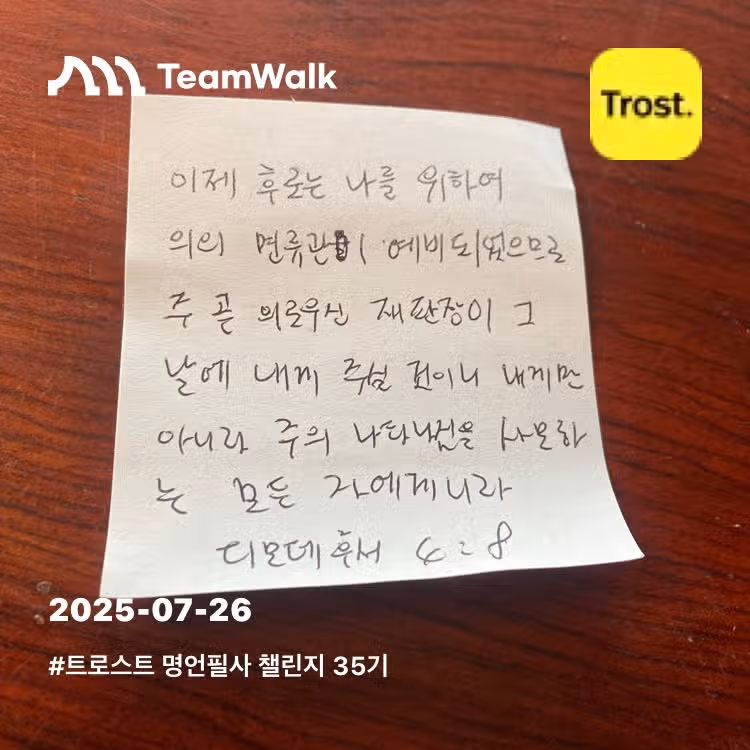 TeamWalk
Trost.
이제 후로는 나를 위하여
의의 면류관이 예비되었으므로
주 곧 의로우신 재판장이 그
날에 내게 주실 것이니 내게만
아니라 주의 나타나심을 사모하
는 모든 자에게니라
디모데후서 4:8
2025-07-26
#트로스트 명언필사 챌린지 35기